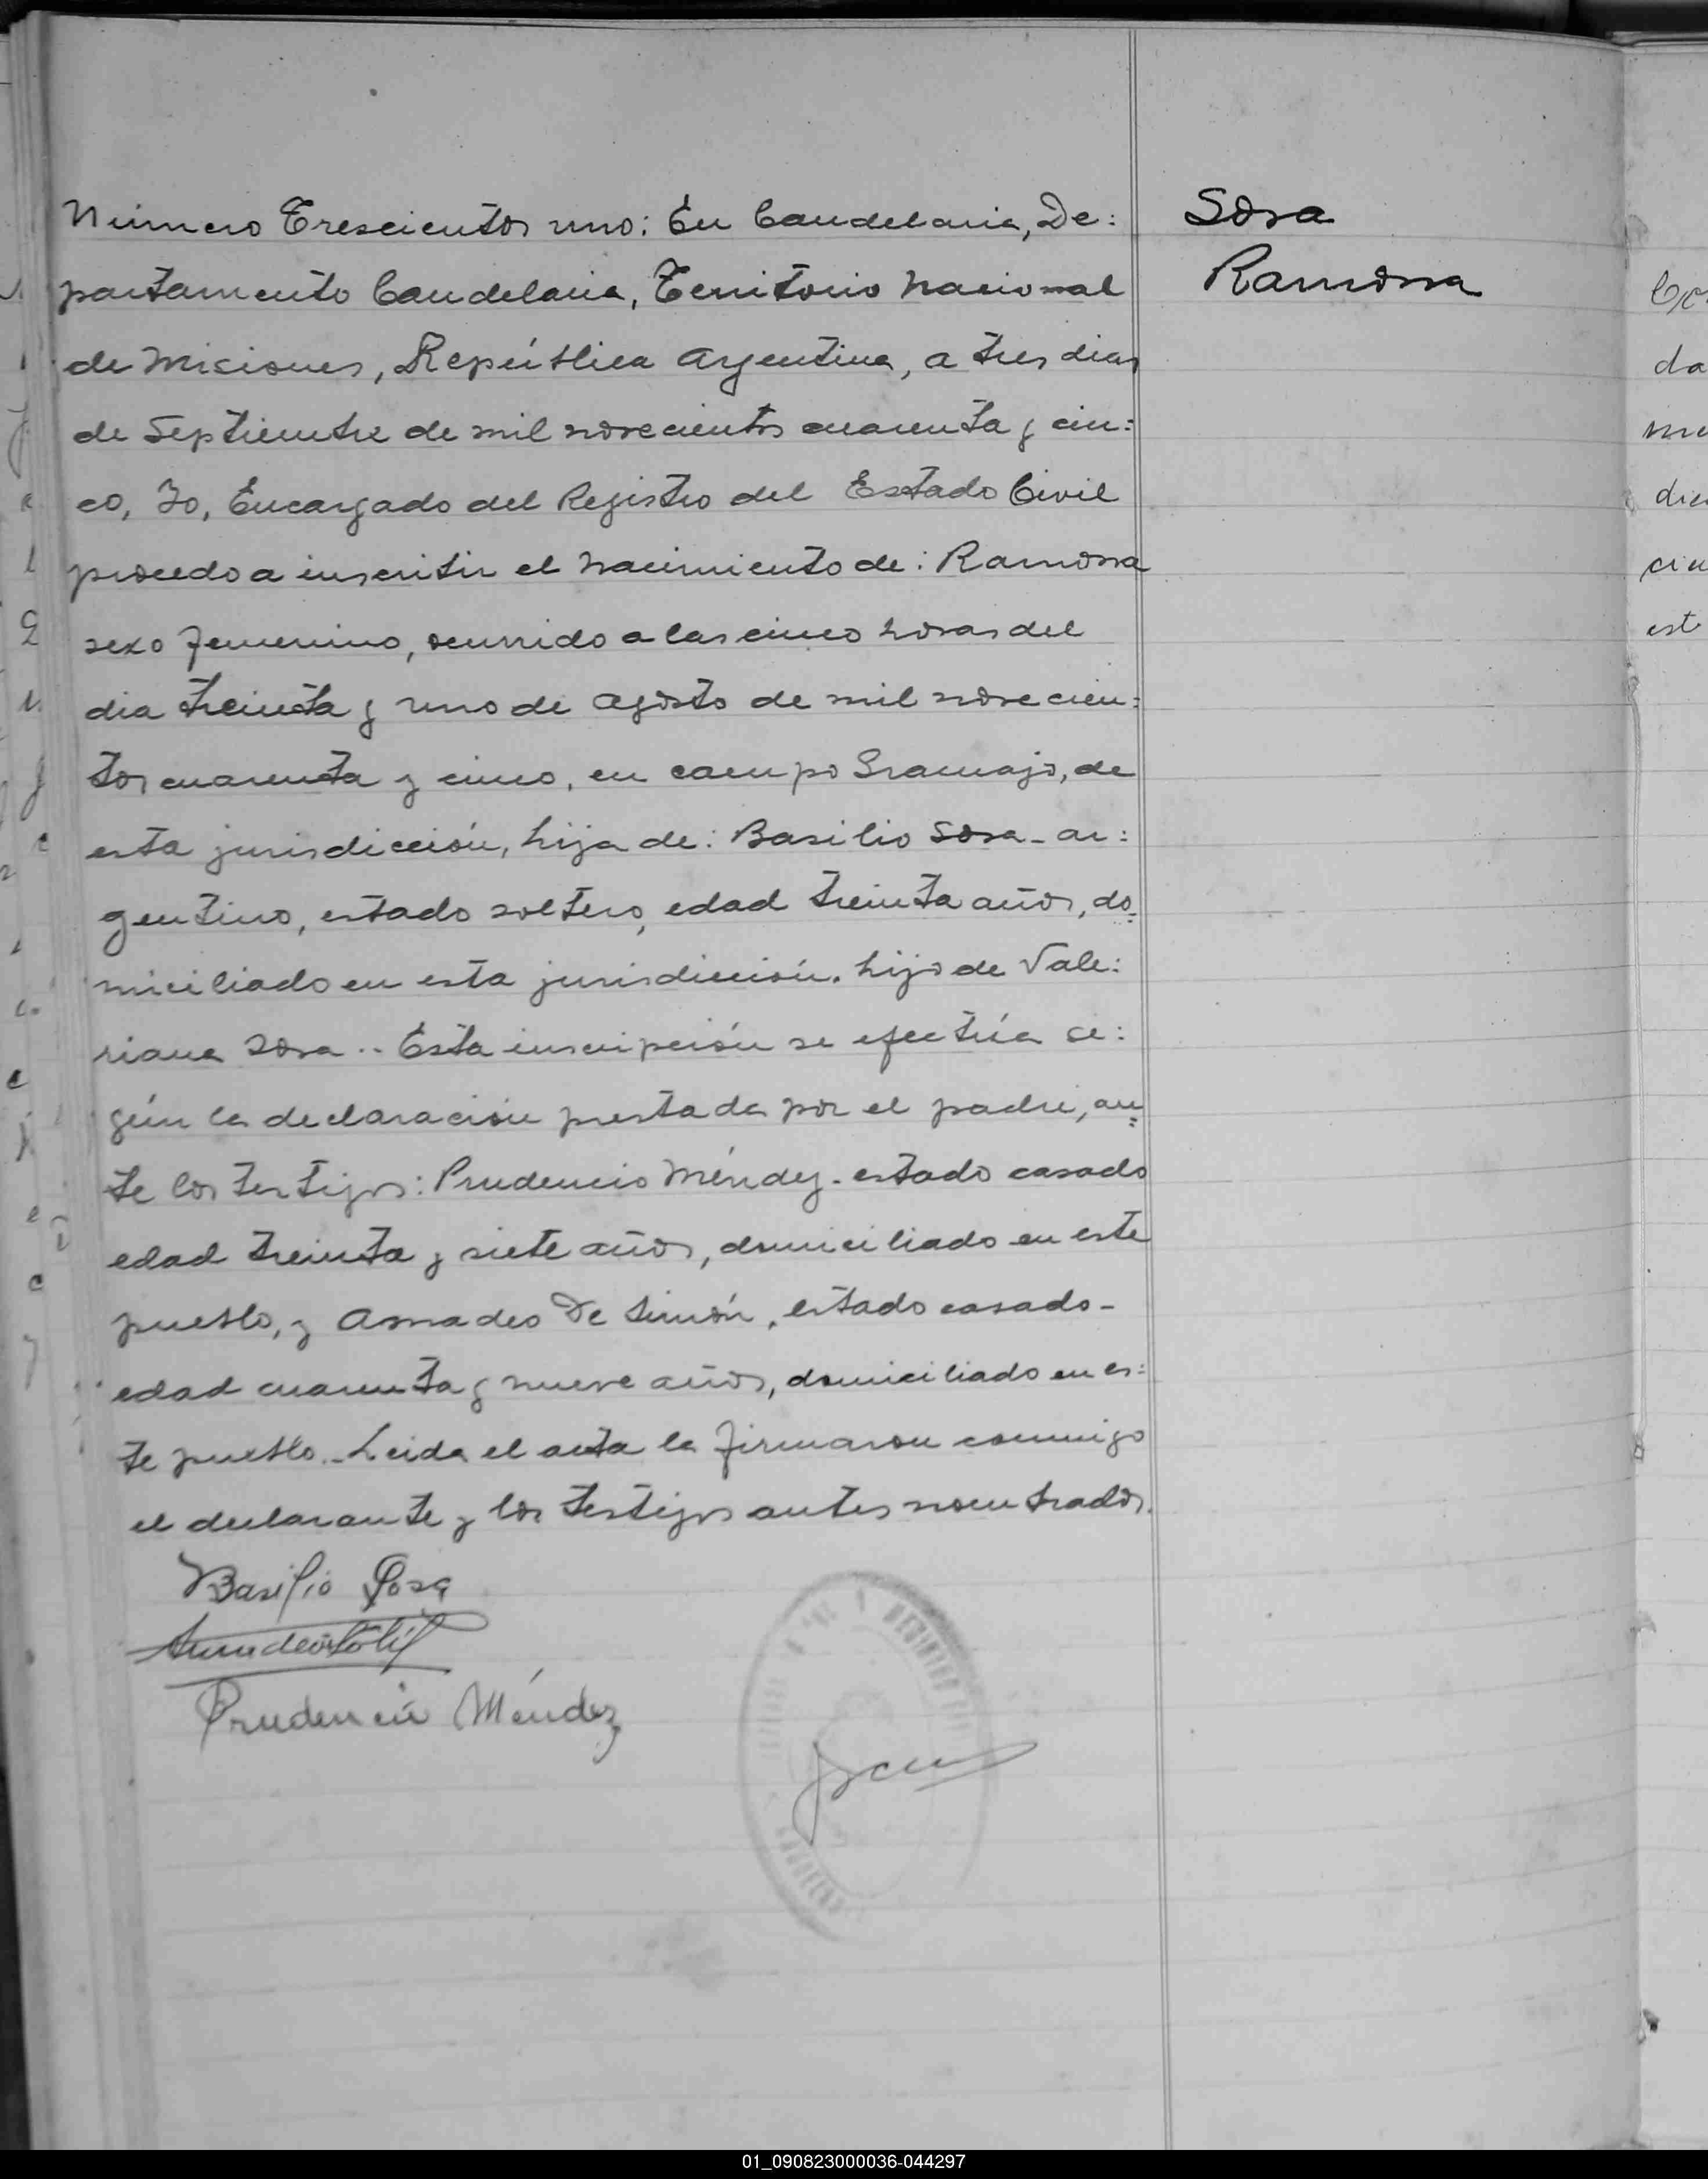 Número Trescientos uno: En Candelaria, De:
partamento Candelaria, Territorio Nacional
de Misiones, República Argentina, a tres dias
de Septiembre de mil novecientos cuarenta y cin:
co, Yo, Encargado del Registro del Estado Civil
procedo a inscribir el nacimiento de: Ramona
sexo femenino, ocurrido a las cinco horas del
dia treinta y uno de Agosto de mil novecien:
tos cuarenta y cinco, en campo Gramajo, de
esta jurisdicción, hija de: Basilio Sosa - ar:
gentino, estado soltero, edad treinta años, do=
miciliado en esta jurisdicción. hijo de Vale:
riana Sosa .. Esta inscripción se efectúa se:
gún la declaración prestada por el padre, an=
te los testigos: Prudencio Méndez - estado casado
edad treinta y siete años, domiciliado en este
pueblo, y Amadeo De Simón, estado casado -
edad cuarenta y nueve años, domiciliado en es:
te pueblo.- Leida el acta la firmaron conmigo
el declarante y los testigos antes nombrados.
Sosa
Ramona
Basilio Sosa
Prudencio Méndez
REGISTRO
01_090823000036-044297